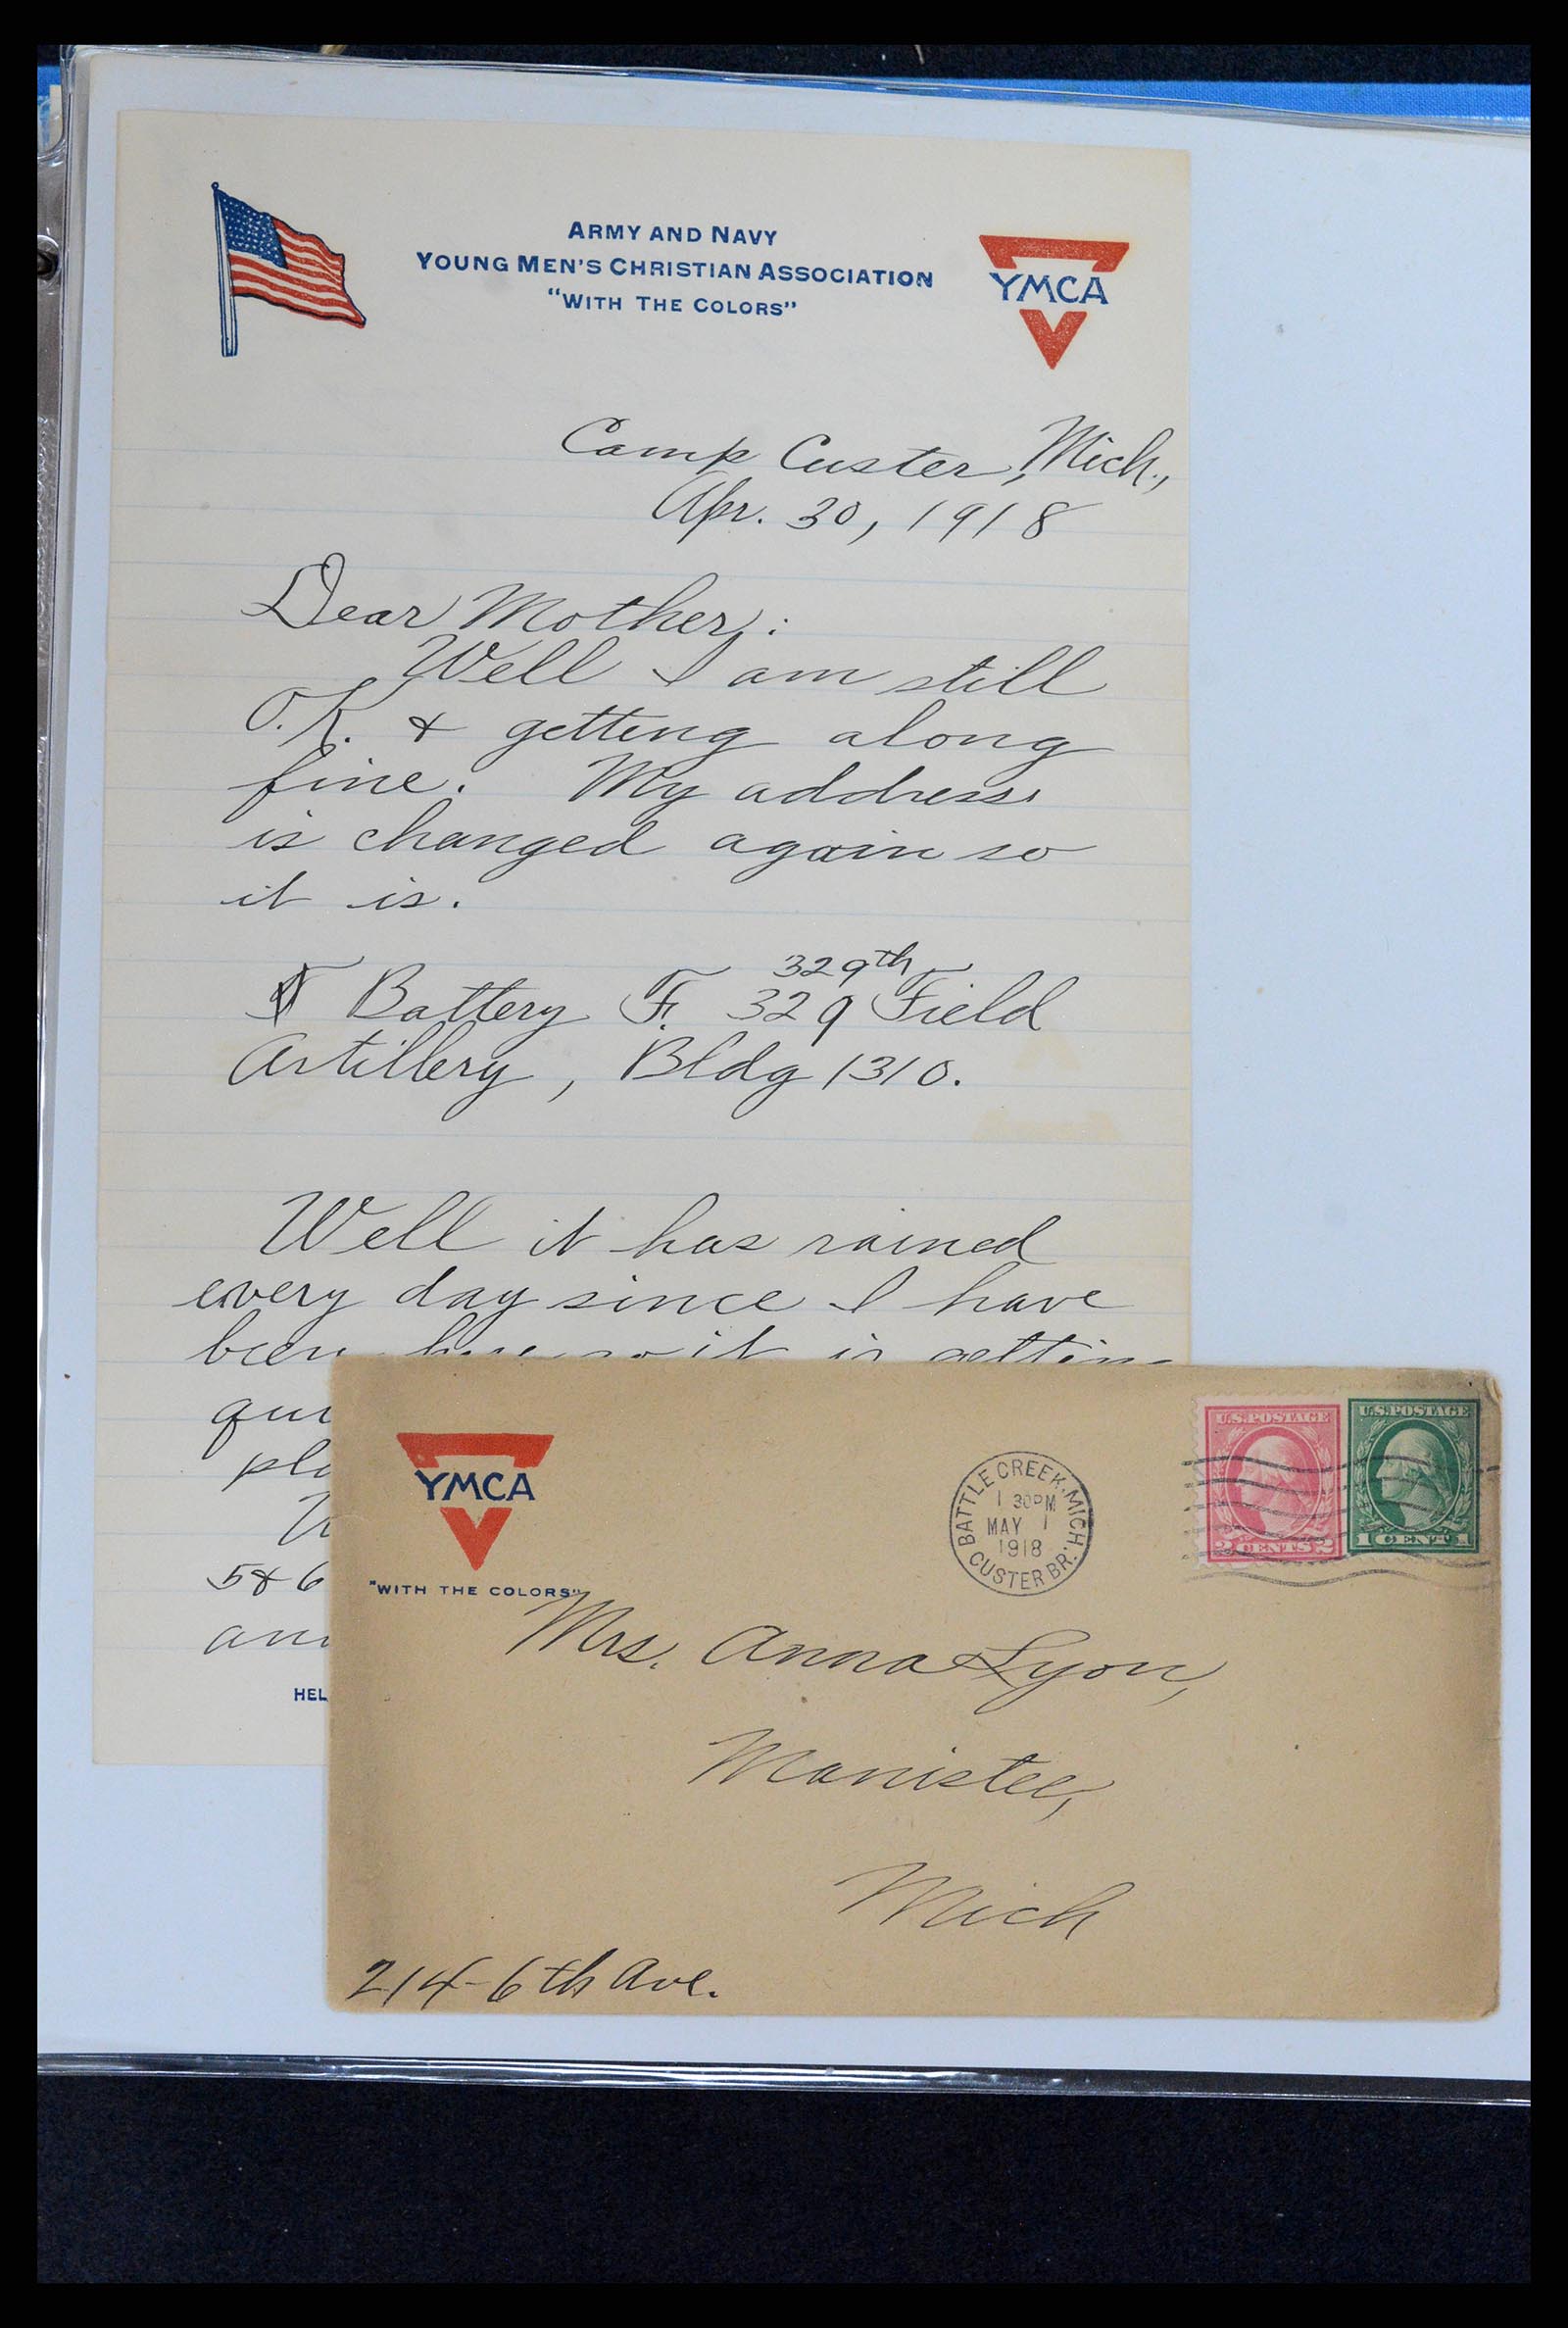 ARMY AND NAVY
YOUNG MEN'S CHRISTIAN ASSOCIATION
"WITH THE COLORS"
YMCA
Camp Custer, Mich.,
Apr. 30, 1918
Dear Mother;:
Well I am still
O.K. & getting along
fine. My address
is changed again so
it is.
Battery F. 329 Field
329th
Artillery, Bldg 1310.
Well it has rained
every day since I have
been here so it is getting
5 & 6
HEL
YMCA
"WITH THE COLORS"
BATTLE CREEK, MICH.
1 30PM
MAY 1
1918
CUSTER BR.
U.S. POSTAGE
2 CENTS 2
U.S. POSTAGE
1 CENT 1
Mrs. Anna Lyon,
Manistee,
Mich
214-6th Ave.